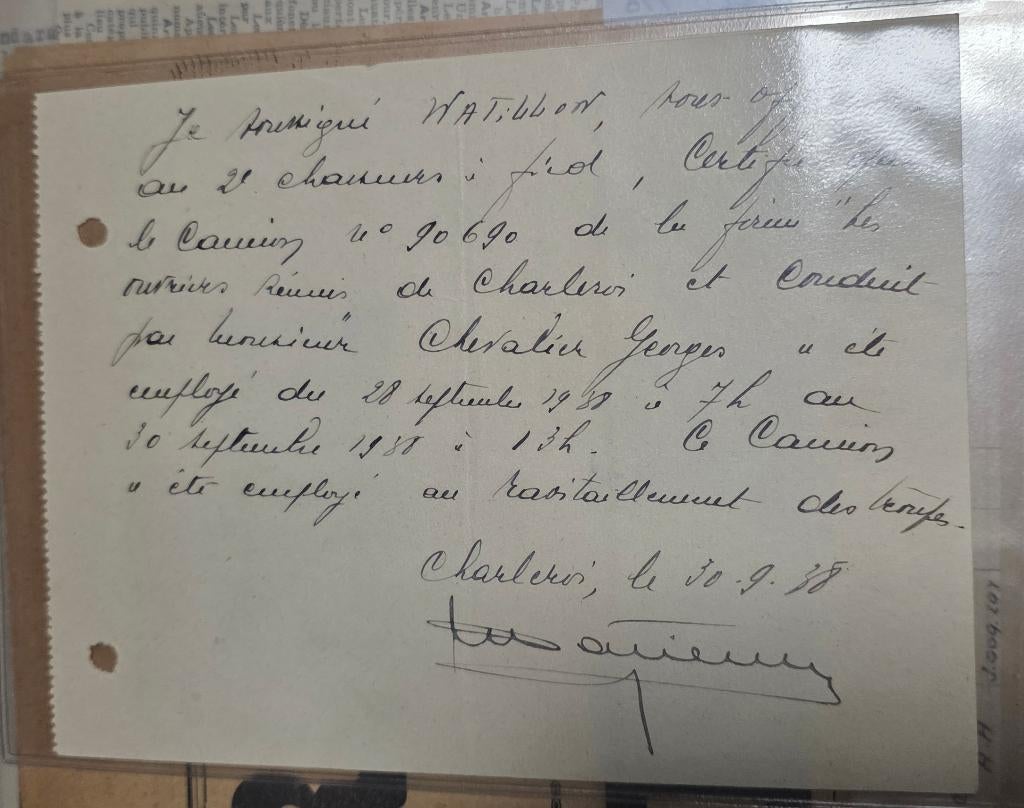 Je soussigné WATILLON, sous-of
au 2e chasseurs à pied, Certifie que
le Camion n° 90690 de la firme "Les
ouvriers réunis de Charleroi et Conduit
par Monsieur Chevalier Georges a été
employé du 28 septembre 1938 à 7h au
30 septembre 1938 à 13h. Ce Camion
a été employé au ravitaillement des troupes.
Charleroi, le 30.9.38
H.H 3.009.207